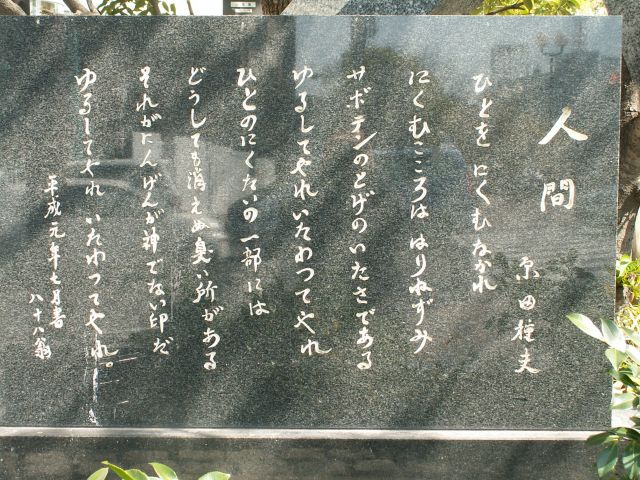 人間
原田種夫
ひとを にくむなかれ
にくむこころは はりねずみ
サボテンのとげのいたさである
ゆるしてやれ いたわつてやれ
ひとのにくたいの一部には
どうしても消えぬ臭い所がある
それがにんげんが神でない印だ
ゆるしてやれ いたわつてやれ。
平成元年七月書
八十八翁